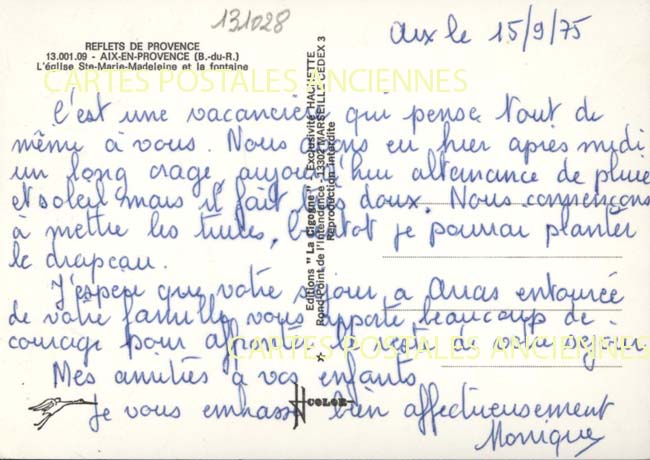 131028
REFLETS DE PROVENCE
13.001.09 - AIX-EN-PROVENCE (B.-du-R.)
L'église Ste-Marie-Madeleine et la fontaine
CARTES POSTALES ANCIENNES
Aix le 15/9/75
C'est une vacancière qui pense tout de
même à vous. Nous avons eu hier après midi
un long orage, aujourd'hui alternance de pluie
et soleil mais il fait très doux. Nous commençons
à mettre les tuiles, bientôt je pourrai planter
le drapeau.
J'espère que votre séjour à entourée
de votre famille vous apporte beaucoup de
courage pour affronter à votre
Mes amitiés à vos enfants
Je vous embrasse bien affectueusement
Monique
Editions "La Cigogne" - Exclusivité HACHETTE
Rond-Point de l'Intendence - 13302 MARSEILLE CEDEX 3
Reproduction interdite
COLOR
CARTES POSTALES ANCIENNES